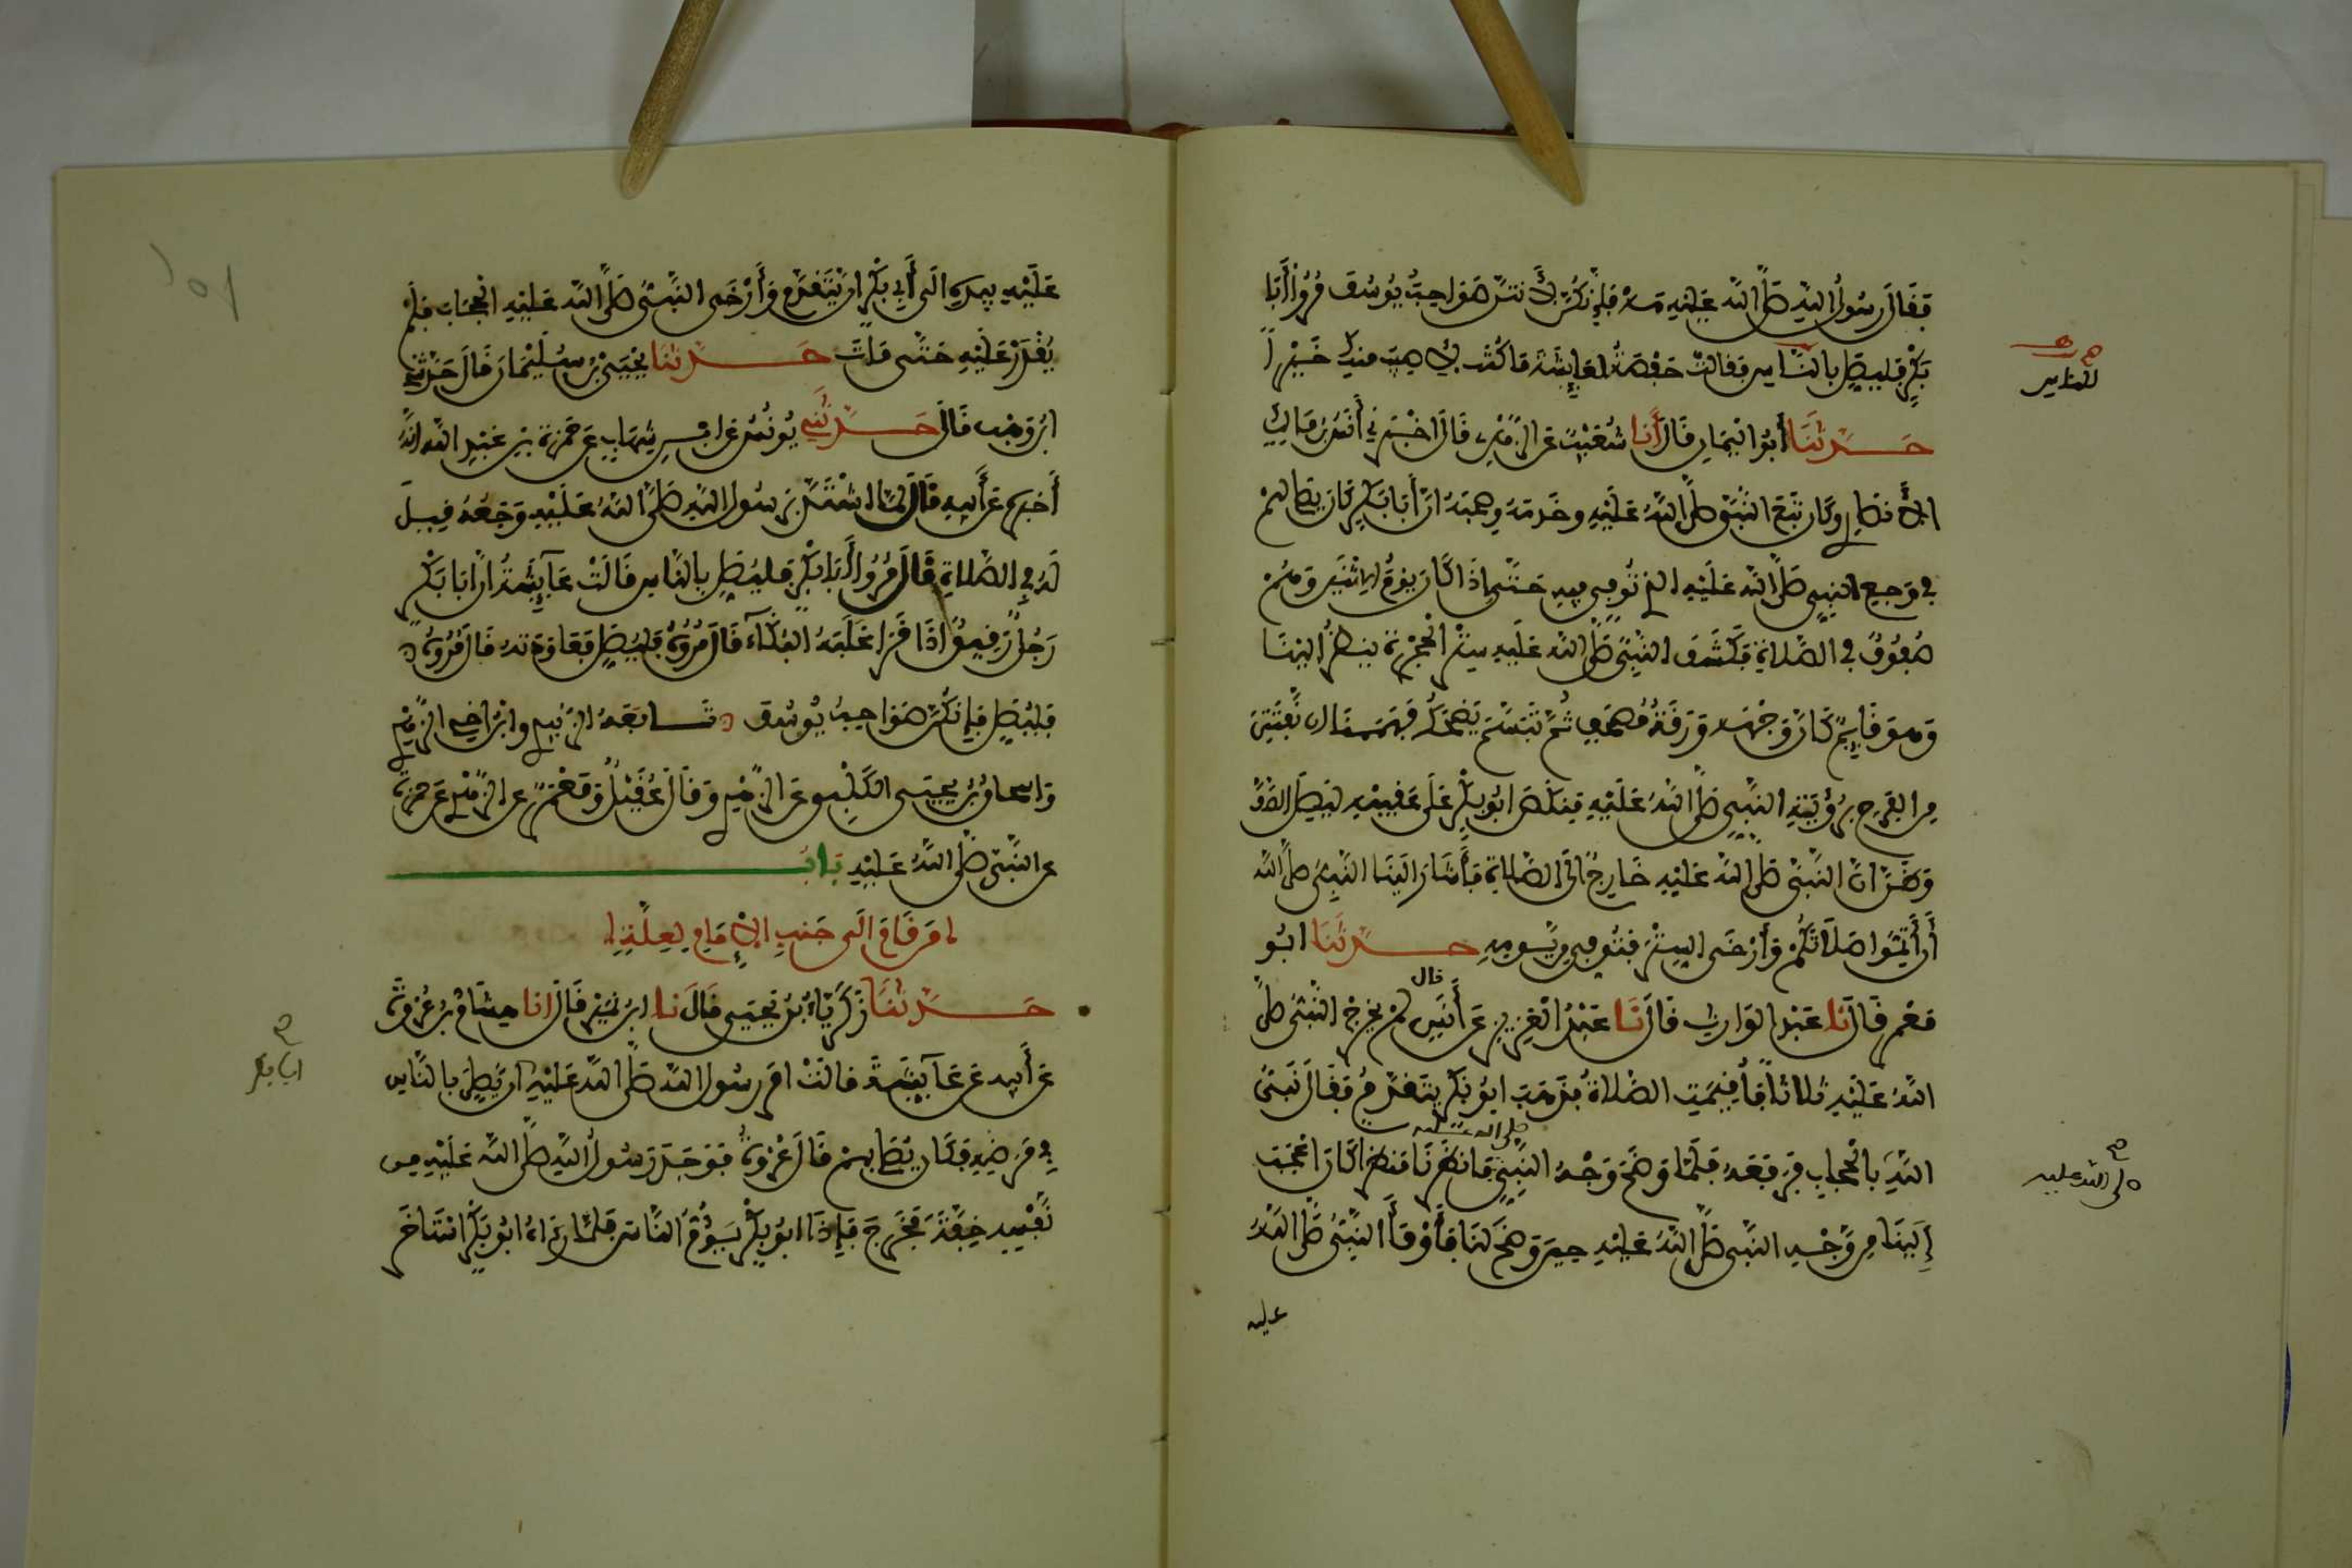 فَقَالَ رسُولُ اللهِ صَلَّى اللهُ عَلَيْهِ مَهْ فَإِنَّكُنَّ لَأَنْتُنَّ صَوَاحِبُ يُوسُفَ مُرُوا أَبَا
بَكْرٍ فَليُصَلِّ بالنَّاسِ فقالتْ حَفْصَةُ لِعَايِشَةَ مَا كُنْتُ لِأُصِيبَ مِنكِ خَيْراً
للناس
حَدَّثَنَا أَبُو اليَمَانِ قَالَ أَنَا شُعَيْبٌ عَنِ الزُّهْرِيِّ قَالَ اخْبَرَنِي أَنَسُ بْنُ مَالِكٍ
الأَنصَارِي وَكَانَ تَبِعَ النَّبِيَّ صَلَّى اللهُ عَلَيْهِ وخَدَمَهُ وصَحِبَهُ انَّ أَبَا بَكْرٍ كَانَ يُصَلِّي لهُمْ
في وَجَعِ النبِيِّ صَلَّى اللهُ عَلَيْهِ الذِي تُوُفِّيَ فِيهِ حَتَّى إِذَا كَانَ يَوْمُ الِاثْنَيْنِ وَهُمْ
صُفُوفٌ في الصَّلاةِ فَكَشَفَ النَّبِيُّ صَلَّى اللهُ عَلَيْهِ سِتْرَ الحُجْرَةِ يَنظُرُ الَيْنَا
وَهوَ قَايِمٌ كَأَنَّ وَجْهَهُ وَرَقَةُ مُصْحَفٍ ثُمَّ تَبَسَّمَ يَضْحَكُ فَهَمَمْنَا ان نَّفْتَتِنَ
مِنَ الفَرَحِ بِرُؤْيَةِ النَّبِيِّ صَلَّى اللهُ عَلَيْهِ فَنَكَصَ ابُو بَكْرٍ عَلَى عَقِبَيْهِ لِيَصِلَ الصَّفَّ
وَظَنَّ انَّ النَّبِيَّ صَلَّى اللهُ عَلَيْهِ خَارِجٌ الَى الصَّلاةِ فَأَشَارَ الَيْنَا النَّبِيُّ صلَّى اللهُ
أَنْ أَتِمُّوا صَلَاتَكُمْ وَأَرْخَى السِّتْرَ فَتُوُفِّيَ مِن يَّوْمِهِ حَدَّثَنَا ابُو
مَعْمَرٍ قَالَ نَا عَبْدُ الوَارِثِ قَالَ نَا عَبْدُ العَزِيزِ عَنْ أَنَسٍ قال لَمْ يَخْرُجِ النَّبِيُّ صَلَّى
اللهُ عَلَيْهِ ثَلاثاً فَأُقِيمَتِ الصَّلاةُ فَذَهَبَ ابُو بَكْرٍ يَتَقَدَّمُ فَقَالَ نَبِيُّ
اللهِ بالحِجَابِ فَرَفَعَهُ فَلَمَّا وَضَحَ وَجْهُ النَّبِيِّ صلى الله عليه مَا نَظَرْنَا مَنظَراً كَانَ اعْجَبَ
صلى الله عليه
إِلَيْنَا مِن وَّجْهِ النَّبِيِّ صَلَّى اللهُ عَلَيْهِ حِينَ وَضَحَ لَنَا فَأَوْمَأَ النَّبِيُّ صَلَّى اللهُ
عليه
عَلَيْهِ بِيَدِهِ الَى أَبِي بَكْرٍ ان يَّتَقَدَّمَ وَأَرْخَى النَّبِيُّ صَلَّى اللهُ عَلَيْهِ الحِجَابَ فَلَمْ
يُقْدَرْ عَلَيْهِ حَتَّى مَاتَ حَدَّثَنَا يَحْيَى بْنُ سُلَيْمَانَ قَالَ حَدَّثَنِي
ابْنُ وَهْبٍ قَالَ حَدَّثَنِي يُونُسُ عَنِ ابْنِ شِهَابٍ عَنْ حَمْزَةَ بْنِ عَبْدِ اللهِ أَنَّهُ
أَخْبَرَهُ عَنْ أَبِيهِ قَالَ لَمَّا اشْتَدَّ بِرَسُولِ اللهِ صَلَّى اللهُ عَلَيْهِ وَجَعُهُ قِيلَ
لَهُ فِي الصَّلاةِ قَالَ مُرُوا أَبَا بَكْرٍ فَليُصَلِّ بِالنَّاسِ قَالَتْ عَايِشَةُ انَّ ابَا بَكْرٍ
رَجُلٌ رَقِيقٌ اذَا قَرَأَ غَلَبَهُ البُكَاءُ قَالَ مُرُوهُ فَليُصَلِّ فَعَاوَدَتْهُ قَالَ مُرُوهُ
فَليُصَلِّ فَإِنَّكُنَّ صَوَاحِبُ يُوسُفَ تَابَعَهُ الزُّبَيْدِي وابْنُ أَخِي الزُّهْرِيِّ
وَاسْحَاقُ بْنُ يَحْيَى الكَلْبِي عَنِ الزُّهْرِيِّ وَقَالَ عُقَيْلٌ وَمَعْمَرٌ عَنِ الزُّهْرِيِّ عَنْ حَمْزَةَ
عَنِ النَّبِيِّ صَلَّى اللهُ عَلَيْهِ بَابُ
مَن قَامَ الَى جَنبِ الإِمَامِ لِعِلَّةٍ
حَدَّثَنَا زَكَرِيَّاءُ بْنُ يَحْيَى قَالَ نا ابْنُ نُمَيْرٍ قَالَ انا هِشَامُ بْنُ عُرْوَةَ
عَنْ أَبِيهِ عَنْ عَايِشَةَ قالَتْ امَرَ رَسُولُ اللهِ صَلَّى اللهُ عَلَيْهِ ان يُّصَلِّيَ بالنَّاسِ
ابا بكر
فِي مَرَضِهِ فَكَانَ يُصَلِّي بِهِمْ قَالَ عُرْوَةُ فَوَجَدَ رَسُولُ اللهِ صَلَّى اللهُ عَلَيْهِ مِن
نَّفْسِهِ خِفَّةً فَخَرَجَ فَإِذَا ابُو بَكْرٍ يَؤُمُّ النَّاسَ فَلَمَّا رَءَاهُ ابُو بَكْرٍ اسْتَاخَرَ